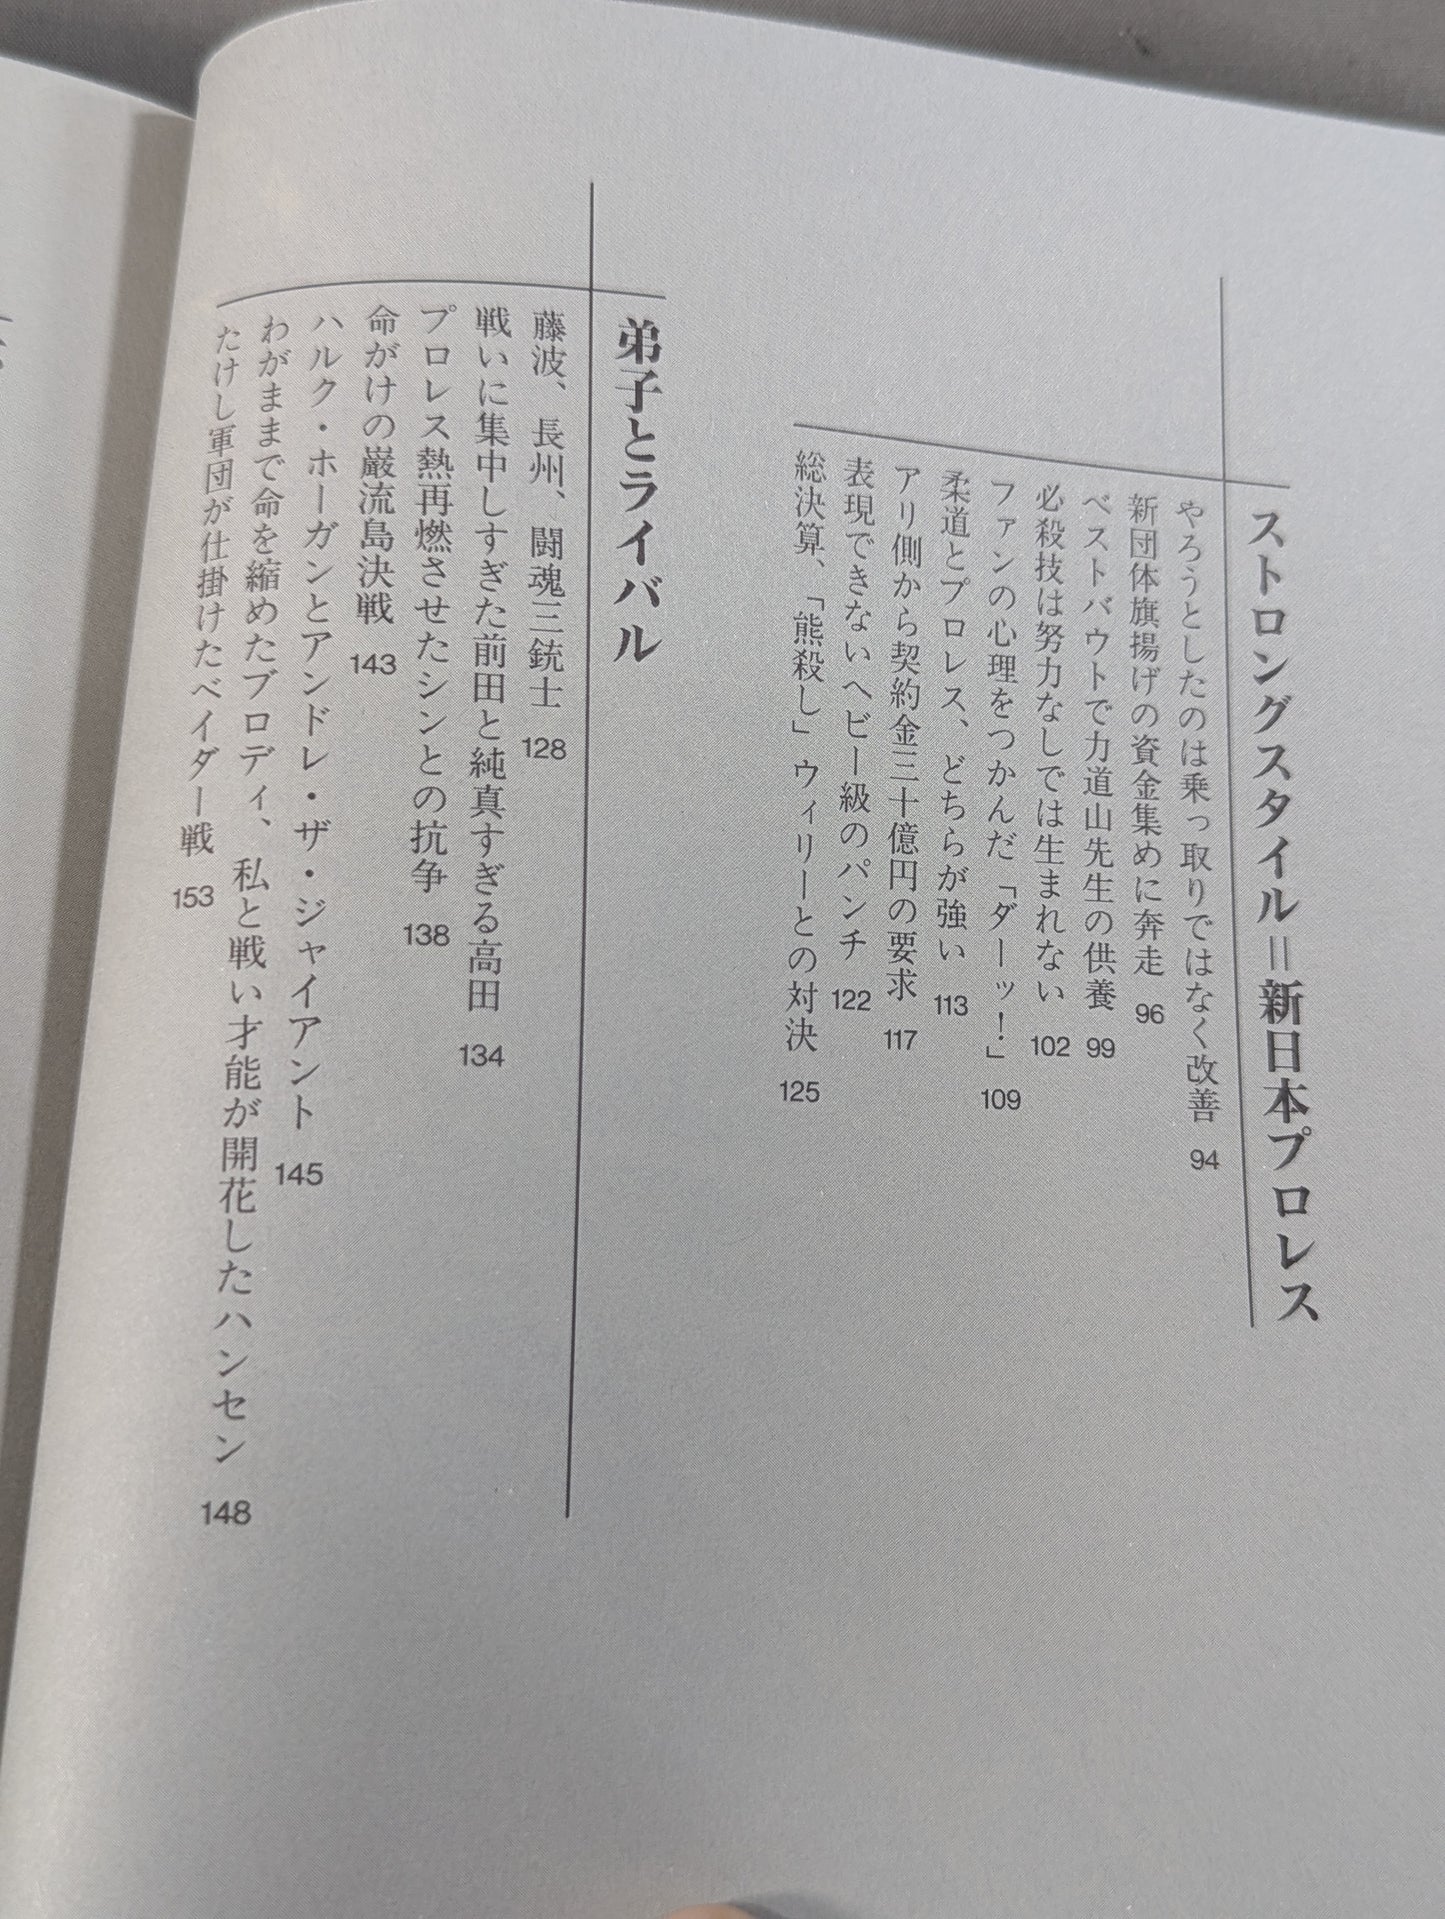 ストロングスタイル＝新日本プロレス
やろうとしたのは乗っ取りではなく改善 94
新団体旗揚げの資金集めに奔走 96
ベストバウトで力道山先生の供養 99
必殺技は努力なしでは生まれない 102
ファンの心理をつかんだ「ダーッ！」 109
柔道とプロレス、どちらが強い 113
アリ側から契約金三十億円の要求 117
表現できないヘビー級のパンチ 122
総決算、「熊殺し」ウィリーとの対決 125
弟子とライバル
藤波、長州、闘魂三銃士 128
戦いに集中しすぎた前田と純真すぎる高田 134
プロレス熱再燃させたシンとの抗争 138
命がけの巌流島決戦 143
ハルク・ホーガンとアンドレ・ザ・ジャイアント 145
わがままで命を縮めたブロディ、私と戦い才能が開花したハンセン 148
たけし軍団が仕掛けたベイダー戦 153